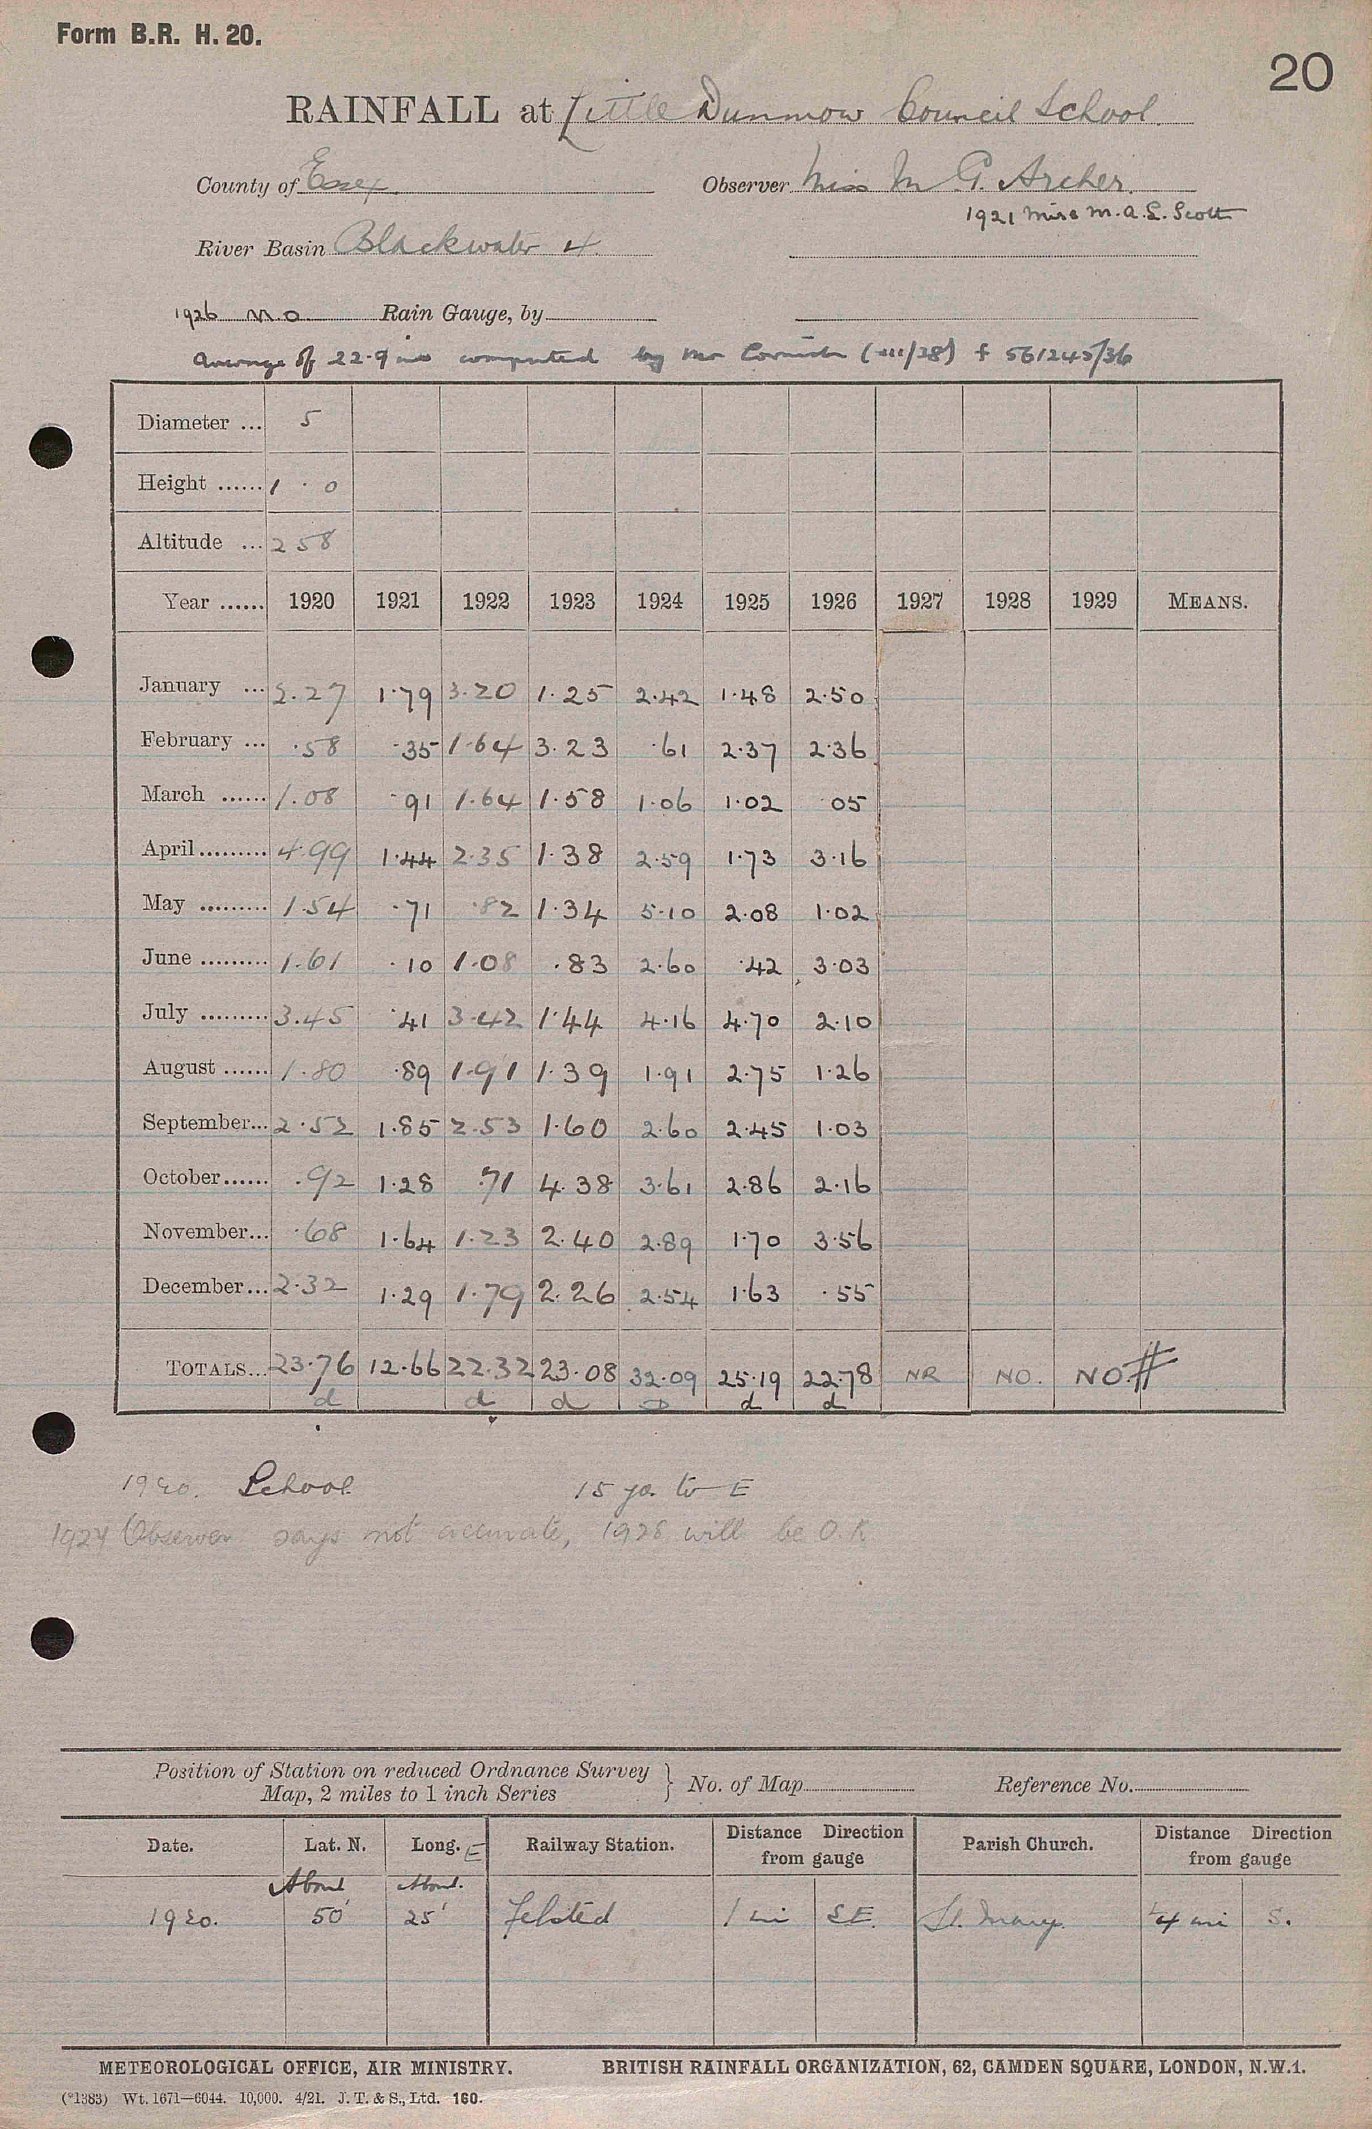 Form B.R. H. 20.
20
RAINFALL at Little Dunmow Council School.
County of Essex Observer Miss M G. Archer.
1921 Miss M.A.L. Scott
River Basin Blackwater 4.
1926 M.O. Rain Gauge, by
Average of 22.9 ins computed by Mr Cornish (III/28) f 561245/36
Diameter ... 5
Height ...... 1 . 0
Altitude ... 258
Year ...... 1920 1921 1922 1923 1924 1925 1926 1927 1928 1929 MEANS.
January ... 2.27 1.79 3.20 1.25 2.42 1.48 2.50
February ... .58 .35 1.64 3.23 .61 2.37 2.36
March ...... 1.08 .91 1.64 1.58 1.06 1.02 .05
April ......... 4.99 1.44 2.35 1.38 2.59 1.73 3.16
May ......... 1.54 .71 .82 1.34 5.10 2.08 1.02
June ......... 1.61 .10 1.08 .83 2.60 .42 3.03
July ......... 3.45 .41 3.42 1.44 4.16 4.70 2.10
August ...... 1.80 .89 1.91 1.39 1.91 2.75 1.26
September... 2.52 1.85 2.53 1.60 2.60 2.45 1.03
October...... .92 1.28 .71 4.38 3.61 2.86 2.16
November... .68 1.64 1.23 2.40 2.89 1.70 3.56
December... 2.32 1.29 1.79 2.26 2.54 1.63 .55
TOTALS... 23.76 12.66 22.32 23.08 32.09 25.19 22.78 NR NO. NO #
d d d d d
1920. School 15 ya. to E
1927 Observer says not accurate, 1928 will be O.K
Position of Station on reduced Ordnance Survey
Map, 2 miles to 1 inch Series } No. of Map Reference No.
Date. Lat. N. Long. E Railway Station. Distance Direction from gauge Parish Church. Distance Direction from gauge
About About.
1920. 50' 25' Felsted 1 mi SE. St. Mary ¼ mi S.
METEOROLOGICAL OFFICE, AIR MINISTRY. BRITISH RAINFALL ORGANIZATION, 62, CAMDEN SQUARE, LONDON, N.W.1.
(*1383) Wt. 1671—6044. 10,000. 4/21. J. T. & S., Ltd. 160.